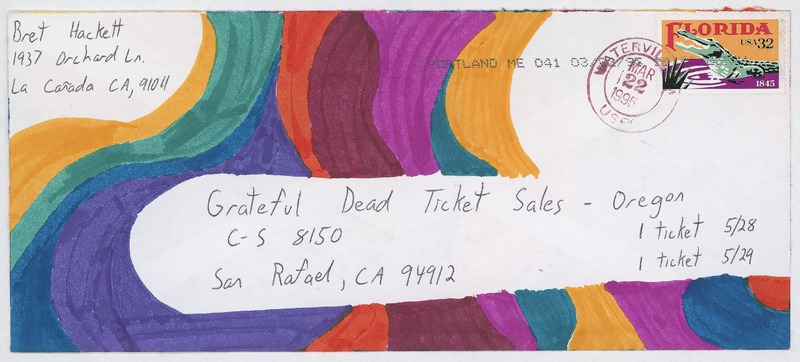 Bret Hackett
1937 Orchard Ln.
La Cañada CA, 91011
PORTLAND ME 041 03/22/95
WATERVILLE
MAR
22
1995
USPS
FLORIDA
USA 32
1845
Grateful Dead Ticket Sales - Oregon
C-S 8150
1 ticket 5/28
San Rafael, CA 94912
1 ticket 5/29